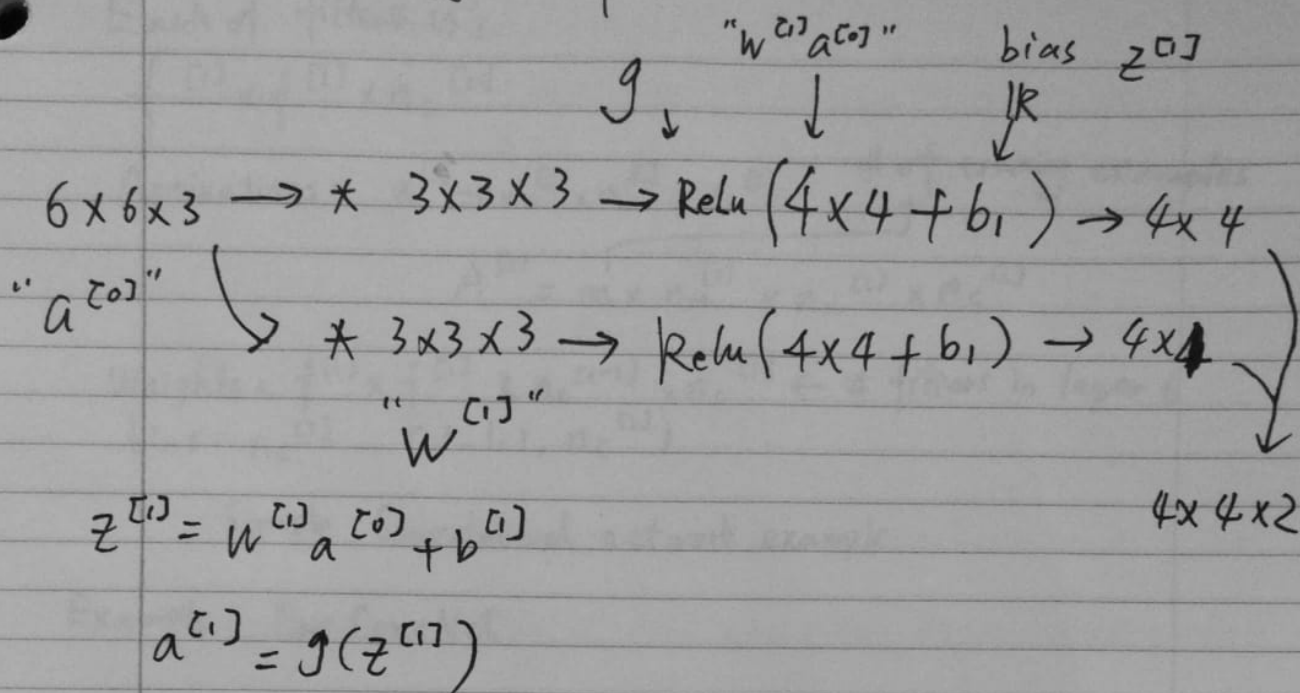 "W^[1] a^[0]" bias z^[1]
g ↓ ↓ ℝ
6×6×3 → * 3×3×3 → Relu(4×4+b₁) → 4×4
"a^[0]"
* 3×3×3 → Relu(4×4+b₁) → 4×4
"W^[1]"
4×4×2
z^[1] = W^[1] a^[0] + b^[1]
a^[1] = g(z^[1])